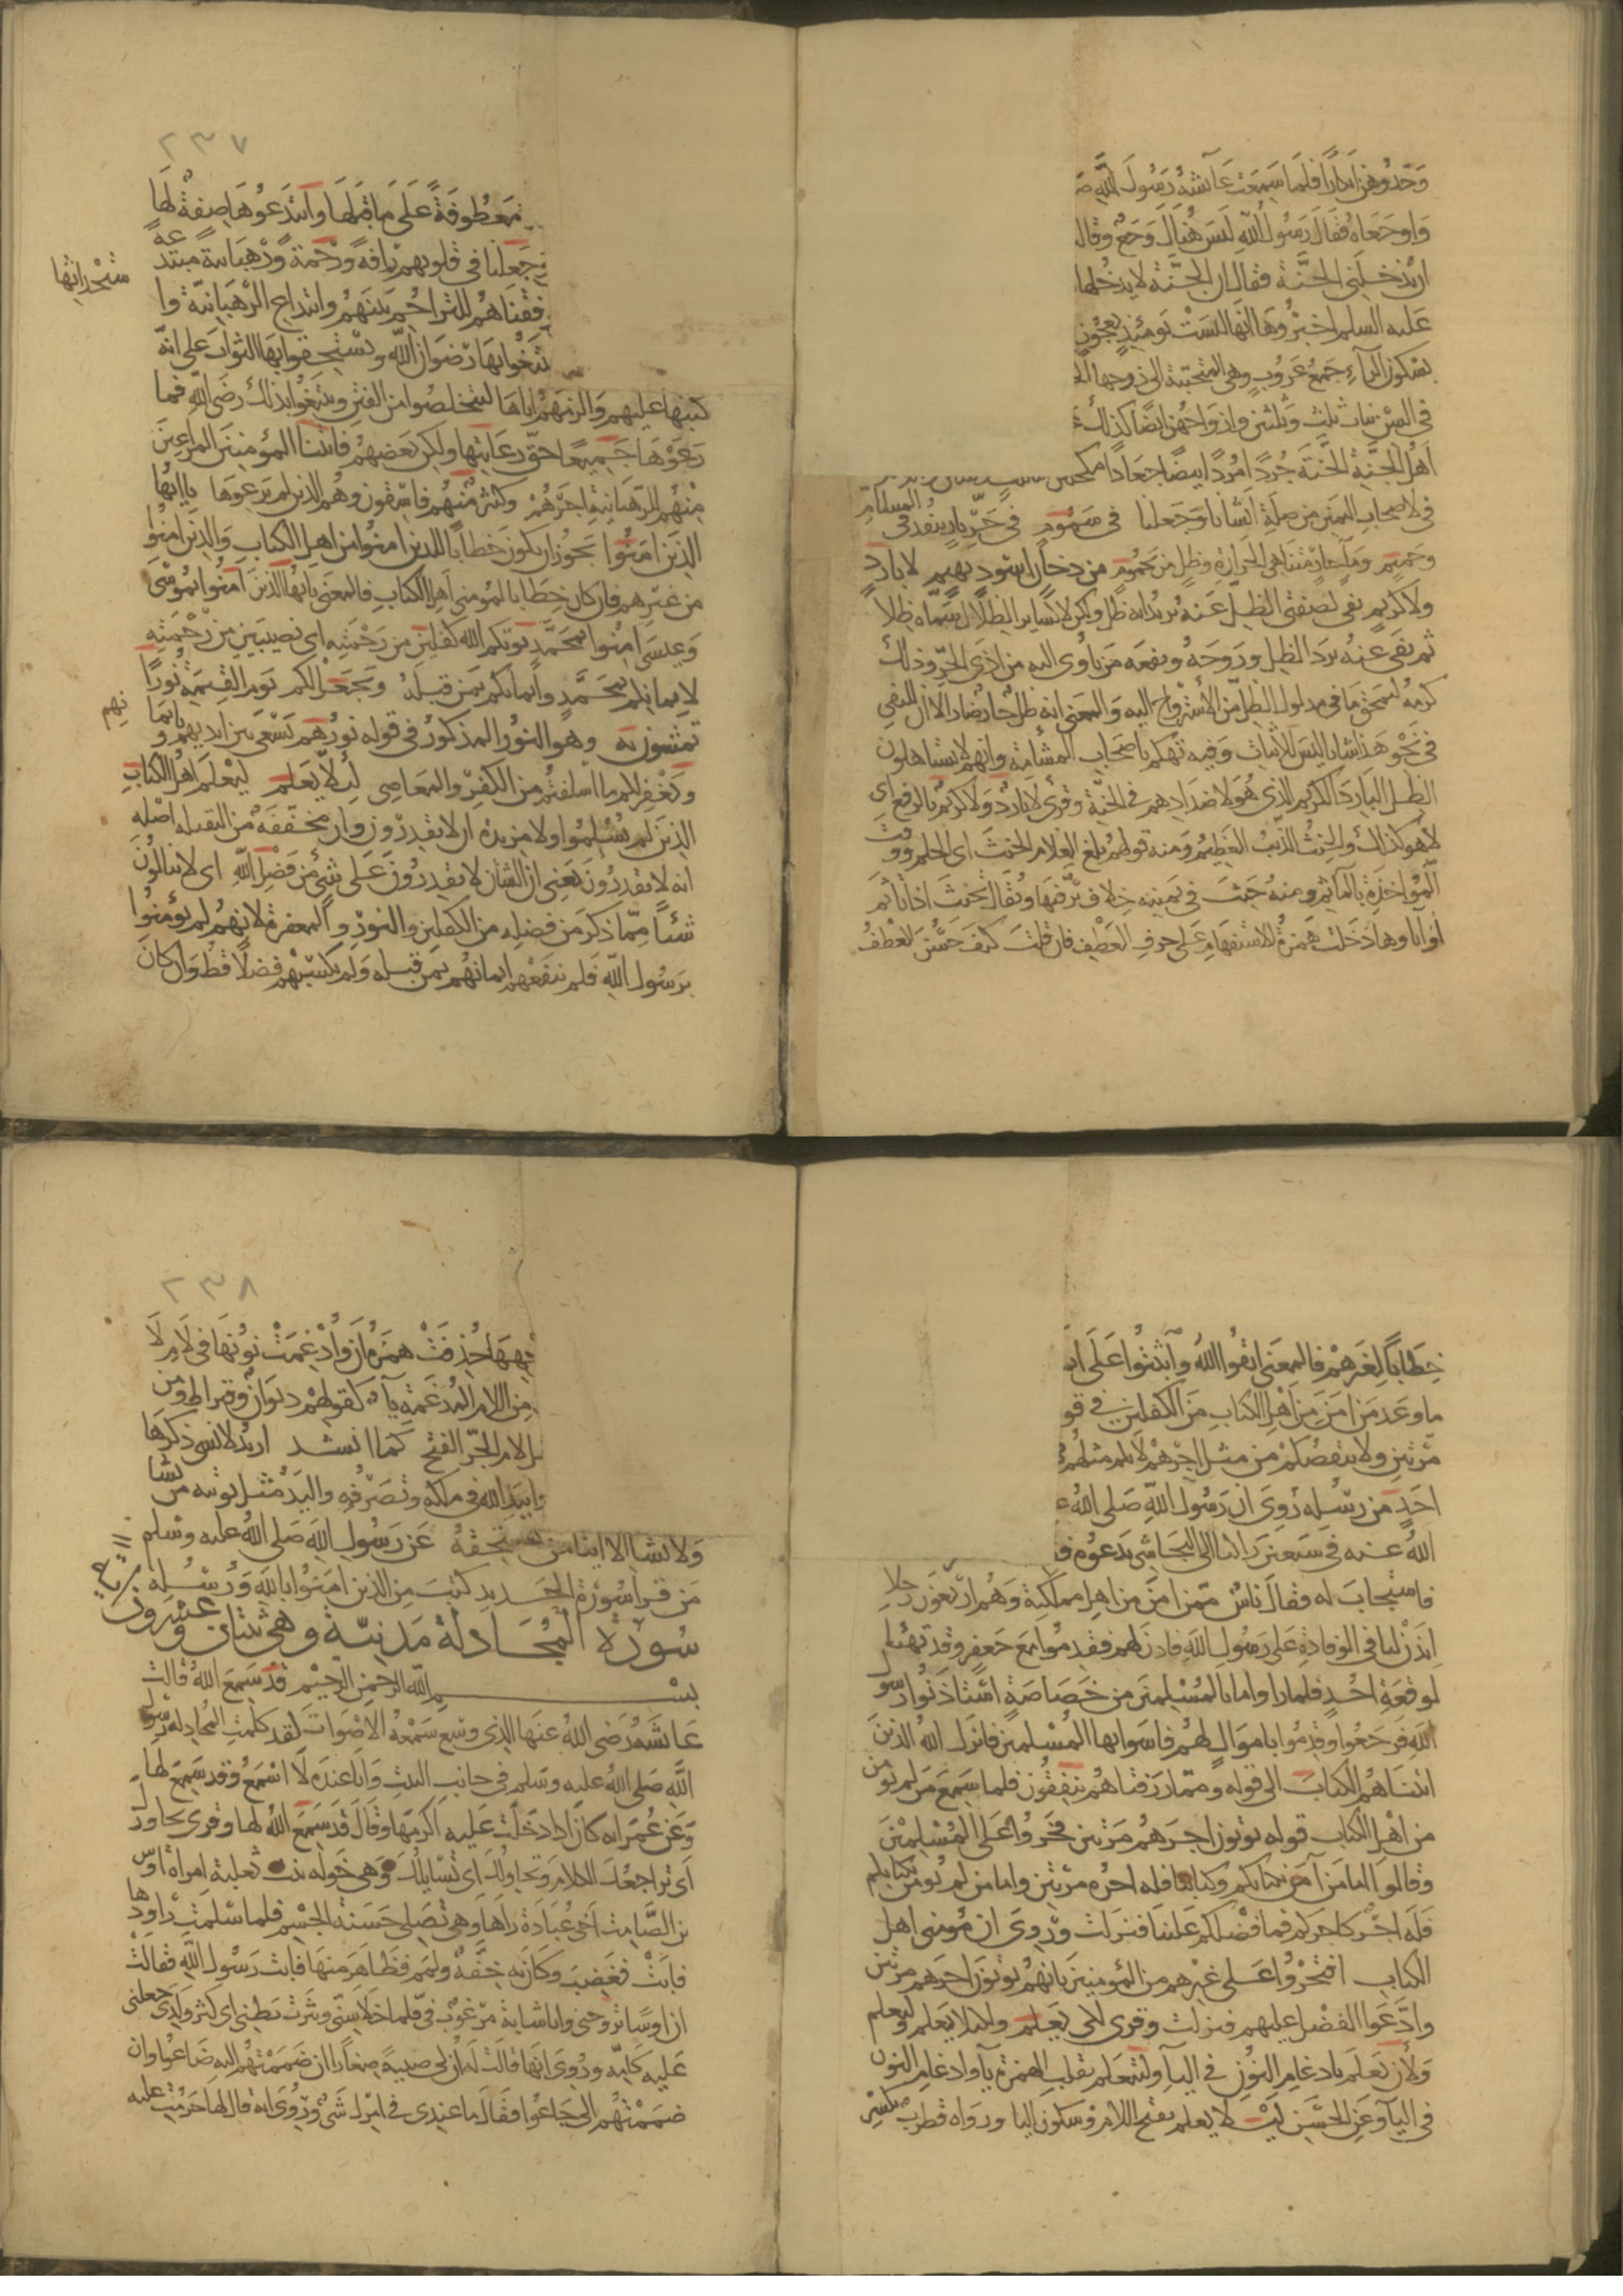 وَجَدُوهن ابكارا فلما سمعت عائشة رسول الله
واوجعاه فقال رسول الله ليس هناك وجع وقال
ان يدخلني الجنة فقال ان الجنة لا يدخلها
عليه السلم اخبروها انها ليست يومئذ بعجوز
بسكون الراء جمع عروب وهي المتحببة الى زوجها
في السن بنات ثلث وثلثين وازواجهن ايضا كذلك
اهل الجنة الجنة جردا مردا بيضا جعادا مكحلين
في لاصحاب اليمين من صلة انشانا وجعلنا في سموم في حر نار ينفذ في المسام
وحميم وماء حار متناهي الحرارة وظل من يحموم من دخان اسود بهيم لا بارد
ولا كريم نفي لصفتي الظل عنه يريد انه ظل ولكن لا كساير الظلال سماه ظلا
ثم نفى عنه برد الظل وروحه ونفعه من يأوى اليه من اذى الحر وذلك
كرمه ليمحق ما في مدلول الظل من الاسترواح اليه والمعنى انه ظل حار ضار الا ان للنفي
في نحو هذا شانا ليس للاثبات وفيه تهكم باصحاب المشأمة وانهم لا يستاهلون
الظل البارد الكريم الذي هو لاضدادهم في الجنة وقرى لا بارد ولا كريم بالرفع اي
لا هو كذلك والحنث الذنب العظيم ومنه قولهم بلغ الغلام الحنث اي الحلم ووقت
المؤاخذة بالمآثم ومنه حنث في يمينه خلاف بر فيها ويقال تحنث اذا تأثم
اوآباونا دخلت همزة الاستفهام على حرف العطف فان قلت كيف حسن العطف
٢٣٧
معطوفة على ما قبلها وابتدعوها صفة لها
وجعلنا في قلوبهم رافة ورحمة ورهبانية مبتدعة
وفقناهم للتراحم بينهم وابتداع الرهبانية وا
ستحداثها
ليبتغوا بها رضوان الله ويستحقوا بها الثواب على انه
كتبها عليهم والزمهم اياها ليتخلصوا من الفتن ويبتغوا بذلك رضى الله فما
رعوها جميعا حق رعايتها ولكن بعضهم فاتينا المؤمنين المراعين
منهم للرهبانية اجرهم وكثير منهم فاسقون وهم الذين لم يرعوها ياايها
الذين امنوا يجوز ان يكون خطابا للذين امنوا من اهل الكتاب والذين امنوا
من غيرهم فان كان خطابا لمؤمني اهل الكتاب فالمعنى ياايها الذين امنوا بموسى
وعيسى امنوا بمحمد يوتكم الله كفلين من رحمته اي نصيبين من رحمته
لايمانكم بمحمد وايمانكم بمن قبله ويجعل لكم يوم القيمة نورا
تمشون به وهو النور المذكور في قوله نورهم يسعى بين ايديهم وبايما
نهم
ويغفر لكم ما اسلفتم من الكفر والمعاصي لئلا يعلم ليعلم اهل الكتاب
الذين لم يسلموا ولا مزيدة ان لا يقدرون وان مخففة من الثقيلة اصله
انه لا يقدرون يعني ان الشان لا يقدرون على شئ من فضل الله اي لا ينالون
شئا مما ذكر من فضله من الكفلين والنور والمغفرة لانهم لم يؤمنوا
برسول الله فلم ينفعهم ايمانهم بمن قبله ولم يكسبهم فضلا قط وان كان
خطابا لغيرهم فالمعنى اتقوا الله واثبتوا على
ما وعد من امن من اهل الكتاب من الكفلين في قو
مرتين ولا ينقصكم من مثل اجرهم لانكم مثلهم
احد من رسله روى ان رسول الله صلى الله
الله عنه في سبعين راكبا الى النجاشي يدعوه
فاستجاب له فقال ناس ممن امن من اهل مملكته وهم اربعون رجلا
ايذن لنا في الوفادة على رسول الله فاذن لهم فقدموا مع جعفر وقد تهيا
لوقعة احد فلما راوا ما بالمسلمين من خصاصة استاذنوا رسول
الله فرجعوا وقدموا باموال لهم فاسوا بها المسلمين فانزل الله الذين
اتيناهم الكتاب الى قوله ومما رزقناهم ينفقون فلما سمع من لم يؤمن
من اهل الكتاب قوله يوتون اجرهم مرتين فخروا على المسلمين
وقالوا اما من آمن بكتابكم وكتابنا فله اجره مرتين واما من لم يؤمن بكتابكم
فله اجر كاجركم فما فضلكم علينا فنزلت وروى ان مؤمني اهل
الكتاب افتخروا على غيرهم من المؤمنين بانهم يوتون اجرهم مرتين
وادعوا الفضل عليهم فنزلت وقرى لكي يعلم ولكيلا يعلم وليعلم
ولأن يعلم بادغام النون في الياء ولينعلم بقلب الهمزة ياء وادغام النون
في الياء وعن الحسن ليلا يعلم بفتح اللام وسكون اليا ورواه قطرب بكسر
٢٣٨
حذفت همزة ان وادغمت نونها في لام لا
من اللام المدغمة ياء كقولهم ديوان وقيراط ومن
لام الجر الفتح كما انشد اريد لانسى ذكرها
بيد الله في ملكه وتصرفه واليد مثل يوتيه من يشا
ولا يشا الا ايتا من يستحقه عن رسول الله صلى الله عليه وسلم
من قرا سورة الحديد كتب من الذين امنوا بالله ورسله
سورة المجادلة مدنية وهي ثنتان وعشرون
بسم الله الرحمن الرحيم قد سمع الله قالت
عائشة رضى الله عنها الذي وسع سمعه الاصوات لقد كلمت المجادلة رسول
الله صلى الله عليه وسلم في جانب البيت وانا عنده لا اسمع وقد سمع لها
وعن عمر انه كان اذا دخلت عليه اكرمها وقال قد سمع الله لها وقرى تحاورك
اي تراجعك الكلام وتحاولك اي تسايلك وهي خولة بنت ثعلبة امراة اوس
بن الصامت اخي عبادة راها وهي تصلي حسنة الجسم فلما سلمت راودها
فابت فغضب وكان به خفة ولمم فظاهر منها فاتت رسول الله فقالت
ان اوسا تزوجني وانا شابة مرغوب في فلما خلا سني ونثرت بطني اي كثر ولدي جعلني
عليه كامه وروى انها قالت له ان لي صبية صغارا ان ضممتهم اليه ضاعوا وان
ضممتهم الي جاعوا فقال ما عندي في امرك شئ وروى انه قال لها حرمت عليه